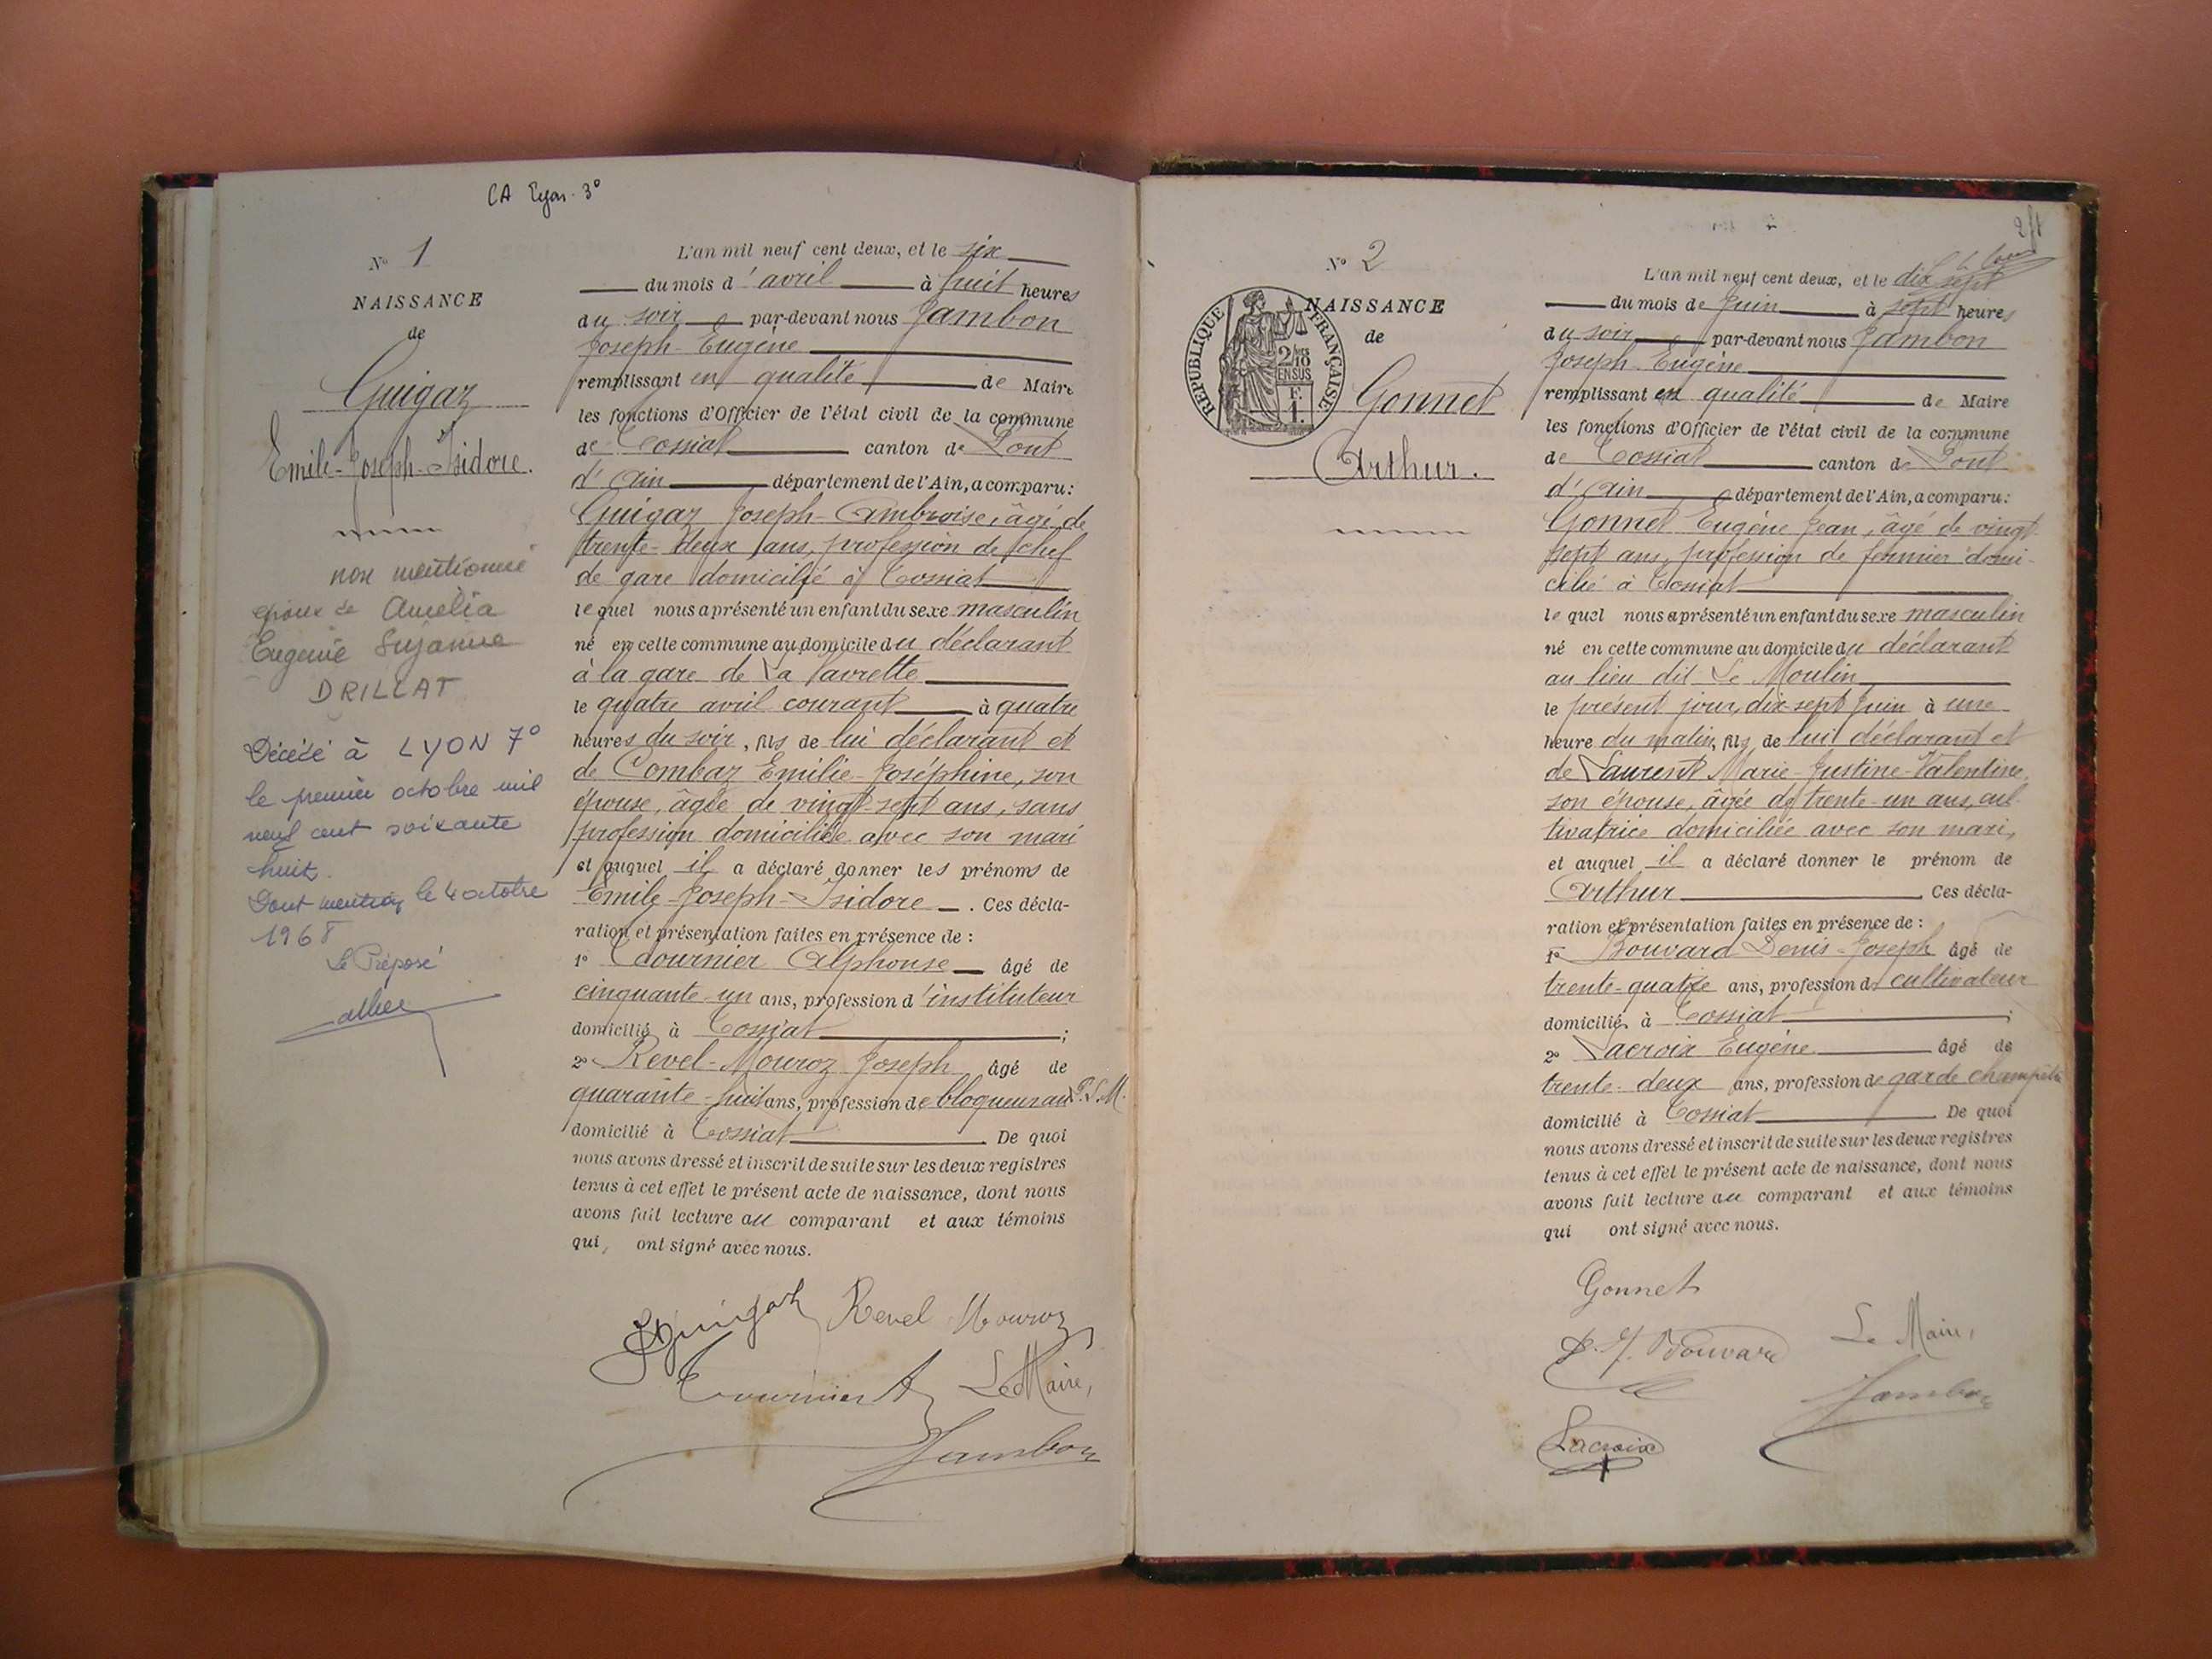 CA Lyon 3°
N° 1
NAISSANCE
de
Guigaz
Emile-Joseph-Isidore.
non mentionné
époux de Amélia
Eugénie Suzanne
DRILLAT
Décédé à LYON 7°
le premier octobre mil
neuf cent soixante
huit.
Dont mention le 4 octobre
1968
Le Préposé
L'an mil neuf cent deux, et le six
du mois d'avril à huit heures
du soir par-devant nous Jambon
Joseph-Eugène
remplissant en qualité de Maire
les fonctions d'Officier de l'état civil de la commune
de Tossiat canton de Pont
d'Ain département de l'Ain, a comparu:
Guigaz Joseph-Ambroise, âgé de
trente-deux ans, profession de chef
de gare domicilié à Tossiat
lequel nous a présenté un enfant du sexe masculin
né en cette commune au domicile du déclarant
à la gare de La Vavrette
le quatre avril courant à quatre
heures du soir, fils de lui déclarant et
de Combaz Emilie-Joséphine, son
épouse, âgée de vingt-sept ans, sans
profession domiciliée avec son mari
et auquel il a déclaré donner les prénoms de
Emile-Joseph-Isidore. Ces décla-
ration et présentation faites en présence de:
1° Tournier Alphonse âgé de
cinquante-un ans, profession d'instituteur
domicilié à Tossiat;
2° Revel-Mouroz Joseph âgé de
quarante-huit ans, profession de bloqueur au P.L.M.
domicilié à Tossiat De quoi
nous avons dressé et inscrit de suite sur les deux registres
tenus à cet effet le présent acte de naissance, dont nous
avons fait lecture au comparant et aux témoins
qui, ont signé avec nous.
Guigaz Revel Mouroz
Tournier A Le Maire,
Jambon
N° 2
NAISSANCE
de
RÉPUBLIQUE FRANÇAISE
2/10 EN SUS
F. 1
Gonnet
Arthur.
L'an mil neuf cent deux, et le dix sept
du mois de Juin à sept heures
du soir par-devant nous Jambon
Joseph-Eugène
remplissant en qualité de Maire
les fonctions d'Officier de l'état civil de la commune
de Tossiat canton de Pont
d'Ain département de l'Ain, a comparu:
Gonnet Eugène Jean, âgé de vingt-
sept ans, profession de fermier domi-
cilié à Tossiat
lequel nous a présenté un enfant du sexe masculin
né en cette commune au domicile du déclarant
au lieu dit Le Moulin
le présent jour, dix-sept Juin à une
heure du matin, fils de lui déclarant et
de Laurent Marie-Justine-Valentine,
son épouse, âgée de trente-un ans, cul-
tivatrice domiciliée avec son mari,
et auquel il a déclaré donner le prénom de
Arthur Ces décla-
ration et présentation faites en présence de:
1° Bouvard Denis-Joseph âgé de
trente-quatre ans, profession de cultivateur
domicilié à Tossiat;
2° Lacroix Eugène âgé de
trente-deux ans, profession de garde champêtre
domicilié à Tossiat De quoi
nous avons dressé et inscrit de suite sur les deux registres
tenus à cet effet le présent acte de naissance, dont nous
avons fait lecture au comparant et aux témoins
qui ont signé avec nous.
Gonnet
D. J. Bouvard Le Maire,
Jambon
Lacroix